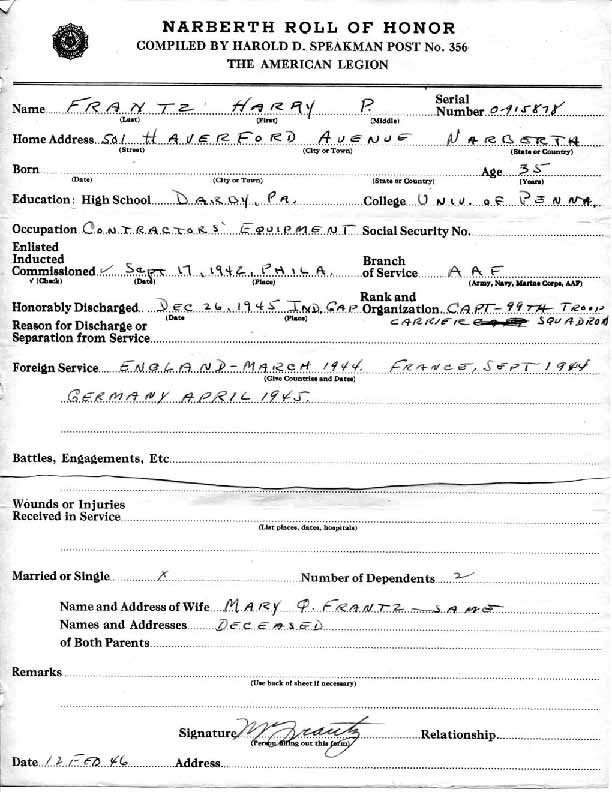 NARBERTH ROLL OF HONOR
COMPILED BY HAROLD D. SPEAKMAN POST No. 356
THE AMERICAN LEGION
Name FRANTZ HARRY P. Serial Number 0-915878
(Last) (First) (Middle)
Home Address 501 HAVERFORD AVENUE NARBERTH
(Street) (City or Town) (State or Country)
Born Age 35
(Date) (City or Town) (State or Country) (Years)
Education: High School DARBY, PA. College UNIV. OF PENNA.
Occupation CONTRACTORS' EQUIPMENT Social Security No.
Enlisted
Inducted Branch
Commissioned ✓ SEPT 17, 1942, PHILA. of Service AAF
√ (Check) (Date) (Place) (Army, Navy, Marine Corps, AAF)
Rank and
Honorably Discharged DEC 26, 1945 IND. GAP Organization CAPT-99TH TROOP
(Date (Place) CARRIER SQUADRON
Reason for Discharge or
Separation from Service
Foreign Service ENGLAND-MARCH 1944. FRANCE, SEPT 1944
(Give Countries and Dates)
GERMANY APRIL 1945.
Battles, Engagements, Etc
Wounds or Injuries
Received in Service
(List places, dates, hospitals)
Married or Single X Number of Dependents 2
Name and Address of Wife MARY Q. FRANTZ - SAME
Names and Addresses DECEASED
of Both Parents
Remarks
(Use back of sheet if necessary)
Signature Frantz Relationship
(Person filling out this form)
Date 12 FEB 46 Address